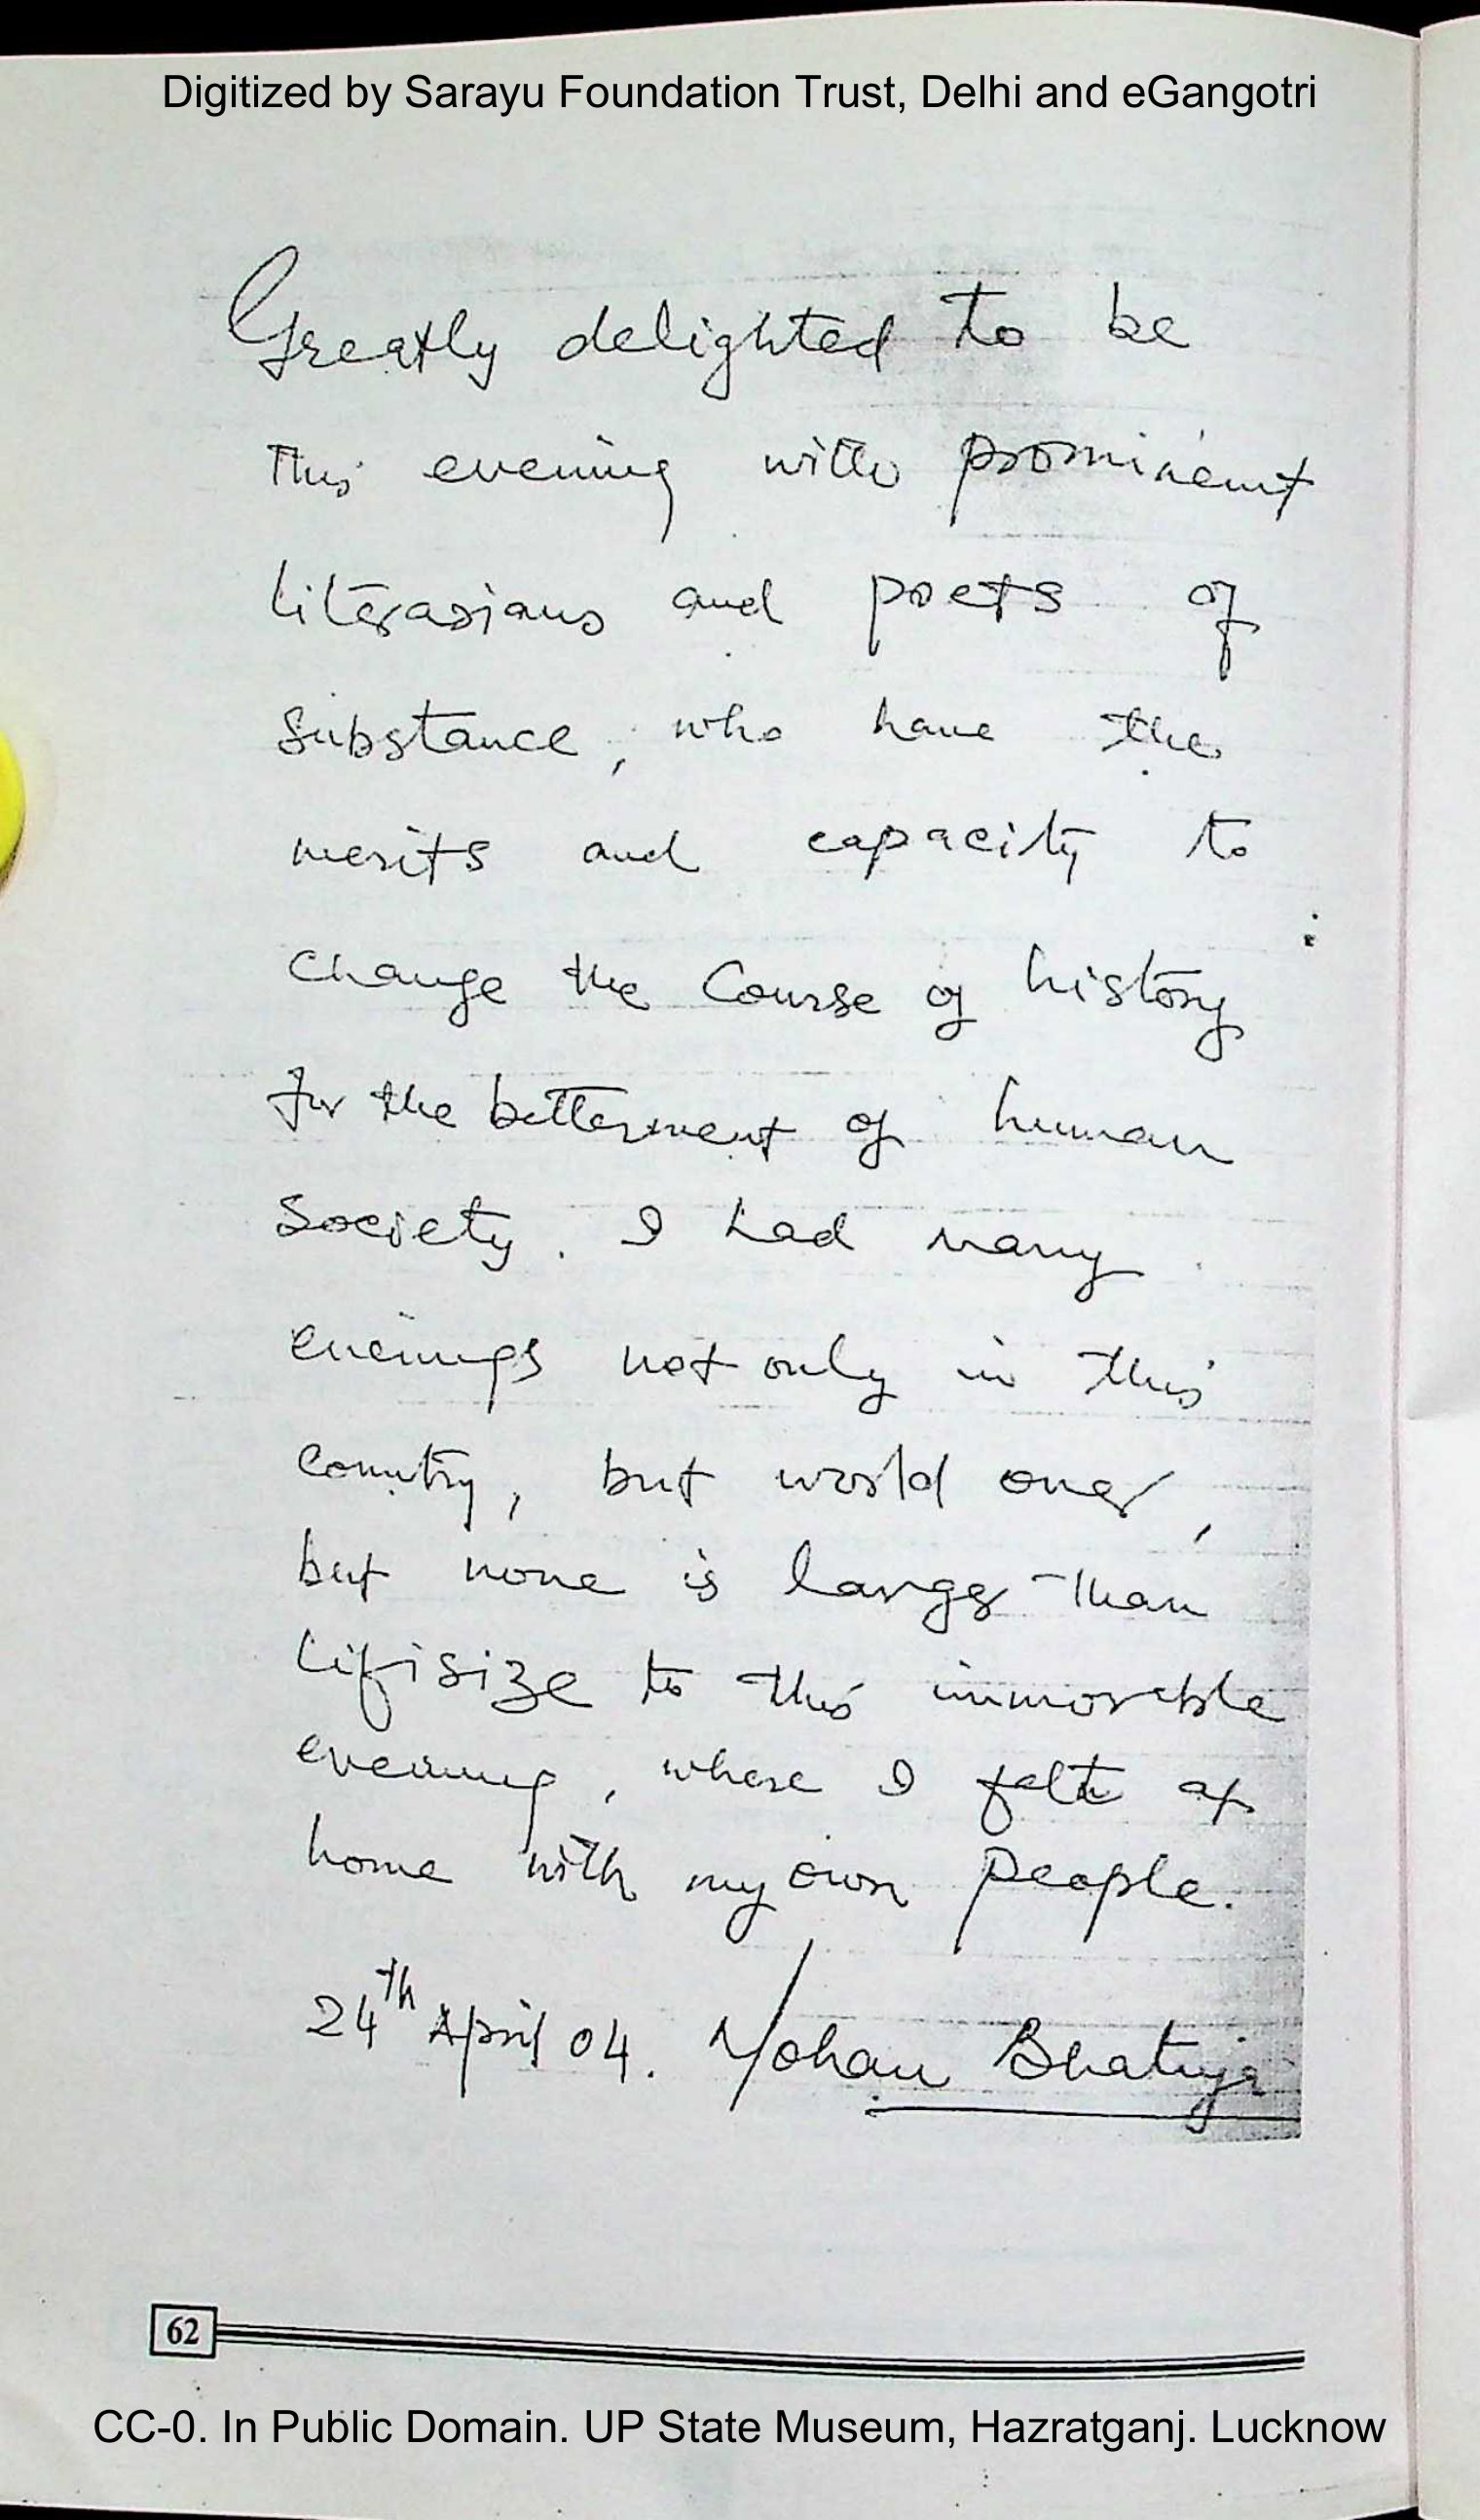 Digitized by Sarayu Foundation Trust, Delhi and eGangotri
Greatly delighted to be
this evening with prominent
literarians and poets of
substance, who have the
merits and capacity to
change the Course of history
for the betterment of human
Society. I had many
evenings not only in this
country, but world over,
but none is larger than
lifisize to this
evening, where I felt at
home with my own people.
24th April 04. Mohan Bhatuja
62
CC-0. In Public Domain. UP State Museum, Hazratganj. Lucknow